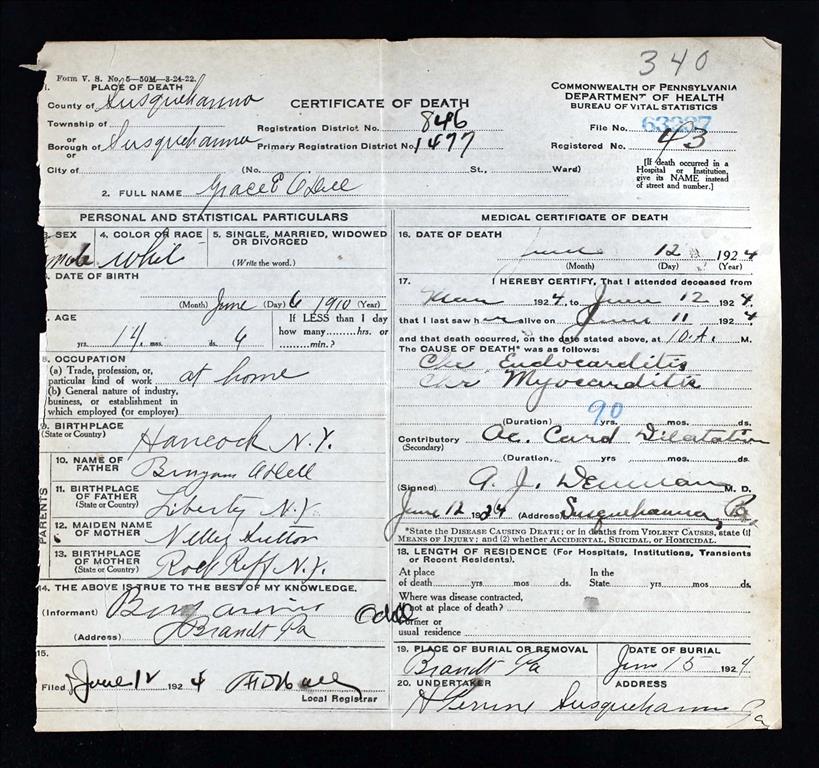 340
Form V. S. No. 5—50M—3-24-22.
1. PLACE OF DEATH
County of Susquehanna
Township of
or
Borough of Susquehanna
or
City of (No. St., Ward)
CERTIFICATE OF DEATH
Registration District No. 846
Primary Registration District No. 1477
COMMONWEALTH OF PENNSYLVANIA
DEPARTMENT OF HEALTH
BUREAU OF VITAL STATISTICS
File No. 63287
Registered No. 43
[If death occurred in a Hospital or Institution, give its NAME instead of street and number.]
2. FULL NAME Grace E Odell
PERSONAL AND STATISTICAL PARTICULARS
3. SEX
4. COLOR OR RACE White
5. SINGLE, MARRIED, WIDOWED OR DIVORCED
(Write the word.)
DATE OF BIRTH
(Month) June (Day) 6 1910 (Year)
AGE
14 yrs. mos. 6 ds.
If LESS than 1 day how many hrs. or min.?
8. OCCUPATION
(a) Trade, profession, or, particular kind of work at home
(b) General nature of industry, business, or establishment in which employed (or employer)
9. BIRTHPLACE
(State or Country) Hancock N.Y.
PARENTS
10. NAME OF FATHER Odell
11. BIRTHPLACE OF FATHER
(State or Country) Liberty N.Y.
12. MAIDEN NAME OF MOTHER Nelley Hutton
13. BIRTHPLACE OF MOTHER
(State or Country) Rock Riff N.Y.
14. THE ABOVE IS TRUE TO THE BEST OF MY KNOWLEDGE.
(Informant) Odell
(Address) Brandt Pa
15.
Filed June 12 1924
Local Registrar
MEDICAL CERTIFICATE OF DEATH
16. DATE OF DEATH
June 12 1924
(Month) (Day) (Year)
17. I HEREBY CERTIFY, That I attended deceased from
1924, to June 12 1924,
that I last saw her alive on June 11 1924
and that death occurred, on the date stated above, at 10 A. M.
The CAUSE OF DEATH* was as follows:
Chr Endocarditis
Chr Myocarditis
90
(Duration) yrs. mos. ds.
Contributory Ac. Card Dilatation
(Secondary)
(Duration, yrs. mos. ds.
(Signed) A. J. Denman M. D.
June 12 1924 Susquehanna, Pa
*State the DISEASE CAUSING DEATH; or in deaths from VIOLENT CAUSES, state (1) MEANS OF INJURY; and (2) whether ACCIDENTAL, SUICIDAL or HOMICIDAL.
18. LENGTH OF RESIDENCE (For Hospitals, Institutions, Transients or Recent Residents).
At place of death yrs. mos. ds.
In the State yrs. mos. ds.
Where was disease contracted,
not at place of death?
Former or
usual residence
19. PLACE OF BURIAL OR REMOVAL
Brandt Pa
DATE OF BURIAL
Jun 15 1924
20. UNDERTAKER
ADDRESS
Susquehanna Pa